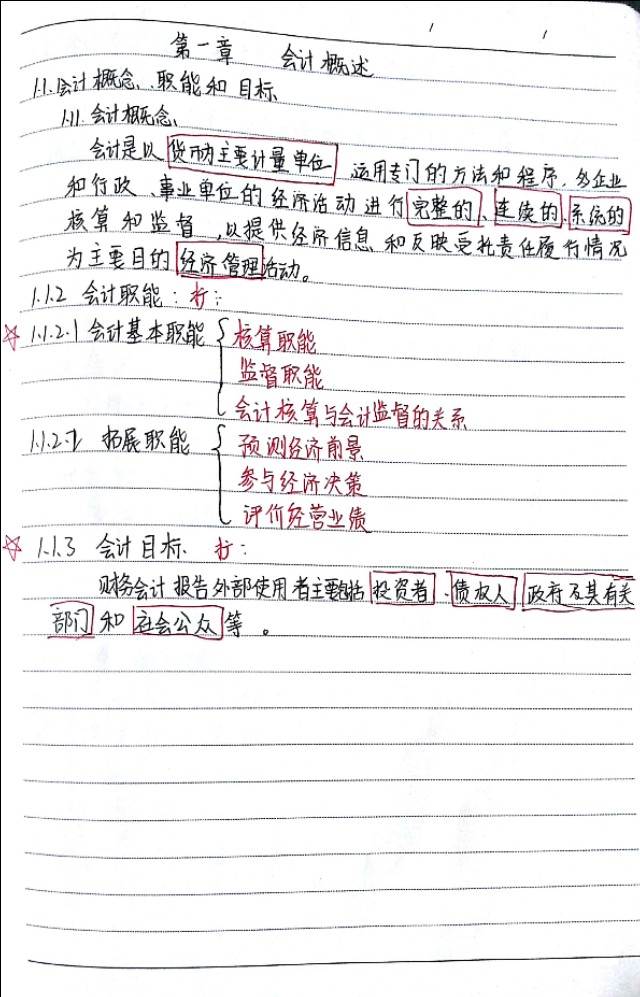 第一章 会计概述
1.1.会计概念、职能和目标
1.1.1.会计概念、
会计是以货币为主要计量单位,运用专门的方法和程序,对企业
和行政、事业单位的经济活动进行完整的、连续的、系统的
核算和监督,以提供经济信息和反映受托责任履行情况
为主要目的经济管理活动。
1.1.2 会计职能:
☆ 1.1.2.1 会计基本职能 { 核算职能
监督职能
会计核算与会计监督的关系
1.1.2.2 拓展职能 { 预测经济前景
参与经济决策
评价经营业绩
☆ 1.1.3 会计目标.
财务会计报告外部使用者主要包括投资者、债权人、政府及其有关
部门和社会公众等。